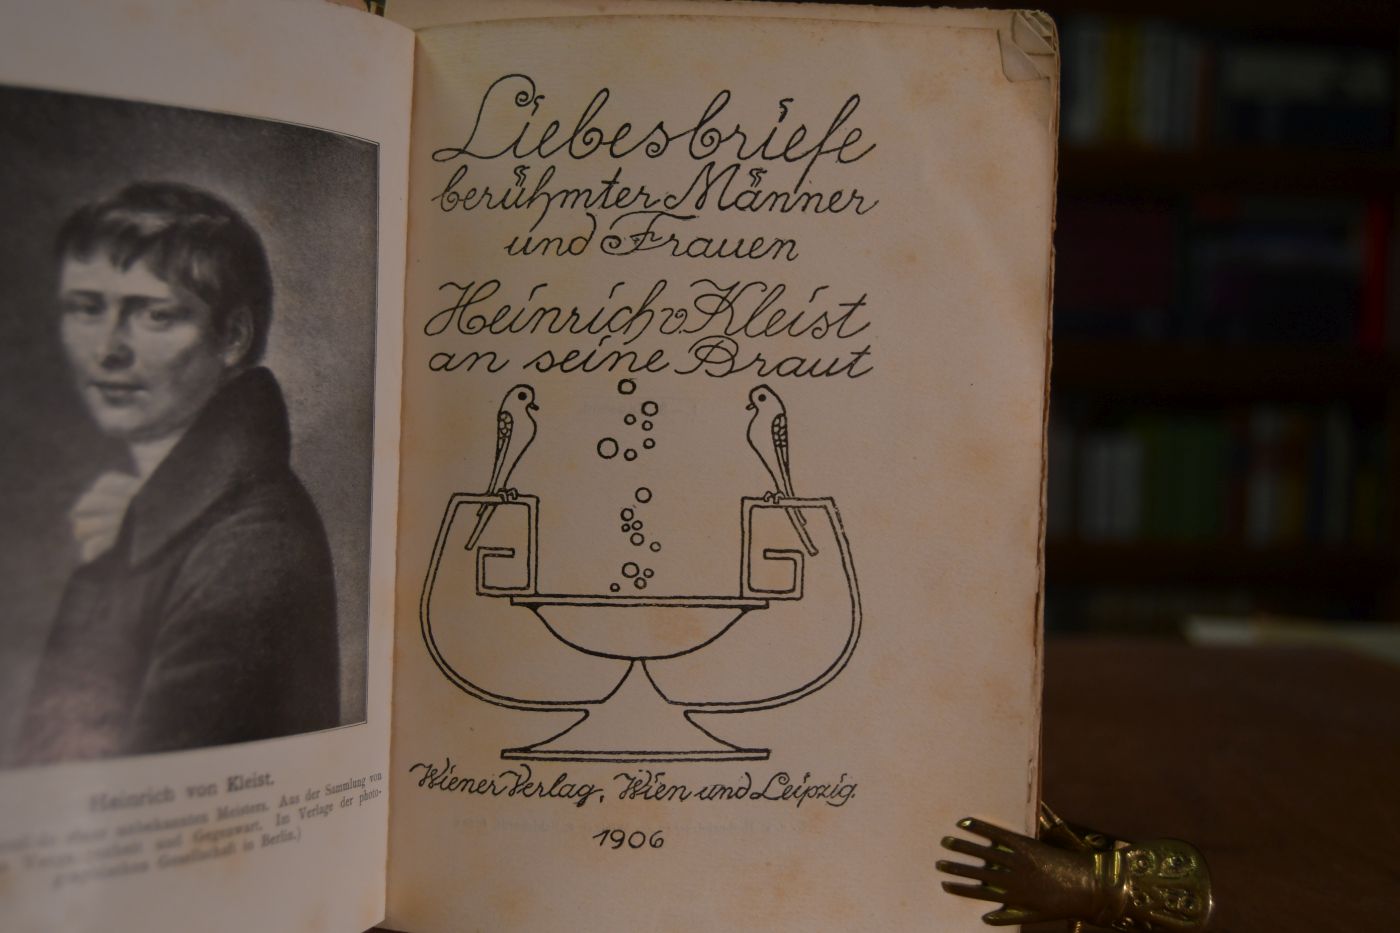 Heinrich von Kleist.
eines unbekannten Meisters. Aus der Sammlung von
und Gegenwart. Im Verlage der photo-
graphischen Gesellschaft in Berlin.)
Liebesbriefe
berühmter Männer
und Frauen
Heinrich v Kleist
an seine Braut
Wiener Verlag, Wien und Leipzig.
1906